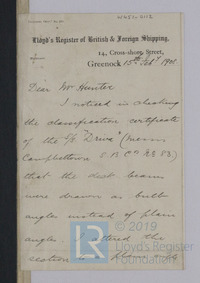 Lloyd's Register of British & Foreign Shipping,
14, Cross-shore Street,
Greenock 15th Feby 1908
Dear Mr Hunter
I noticed in checking
the classification certificate
of the S/S "Drive"
Campbeltown
that the deck beams
were drawn as bulb
angles instead of plain
angles
section
© 2019
Lloyd's Register
Foundation